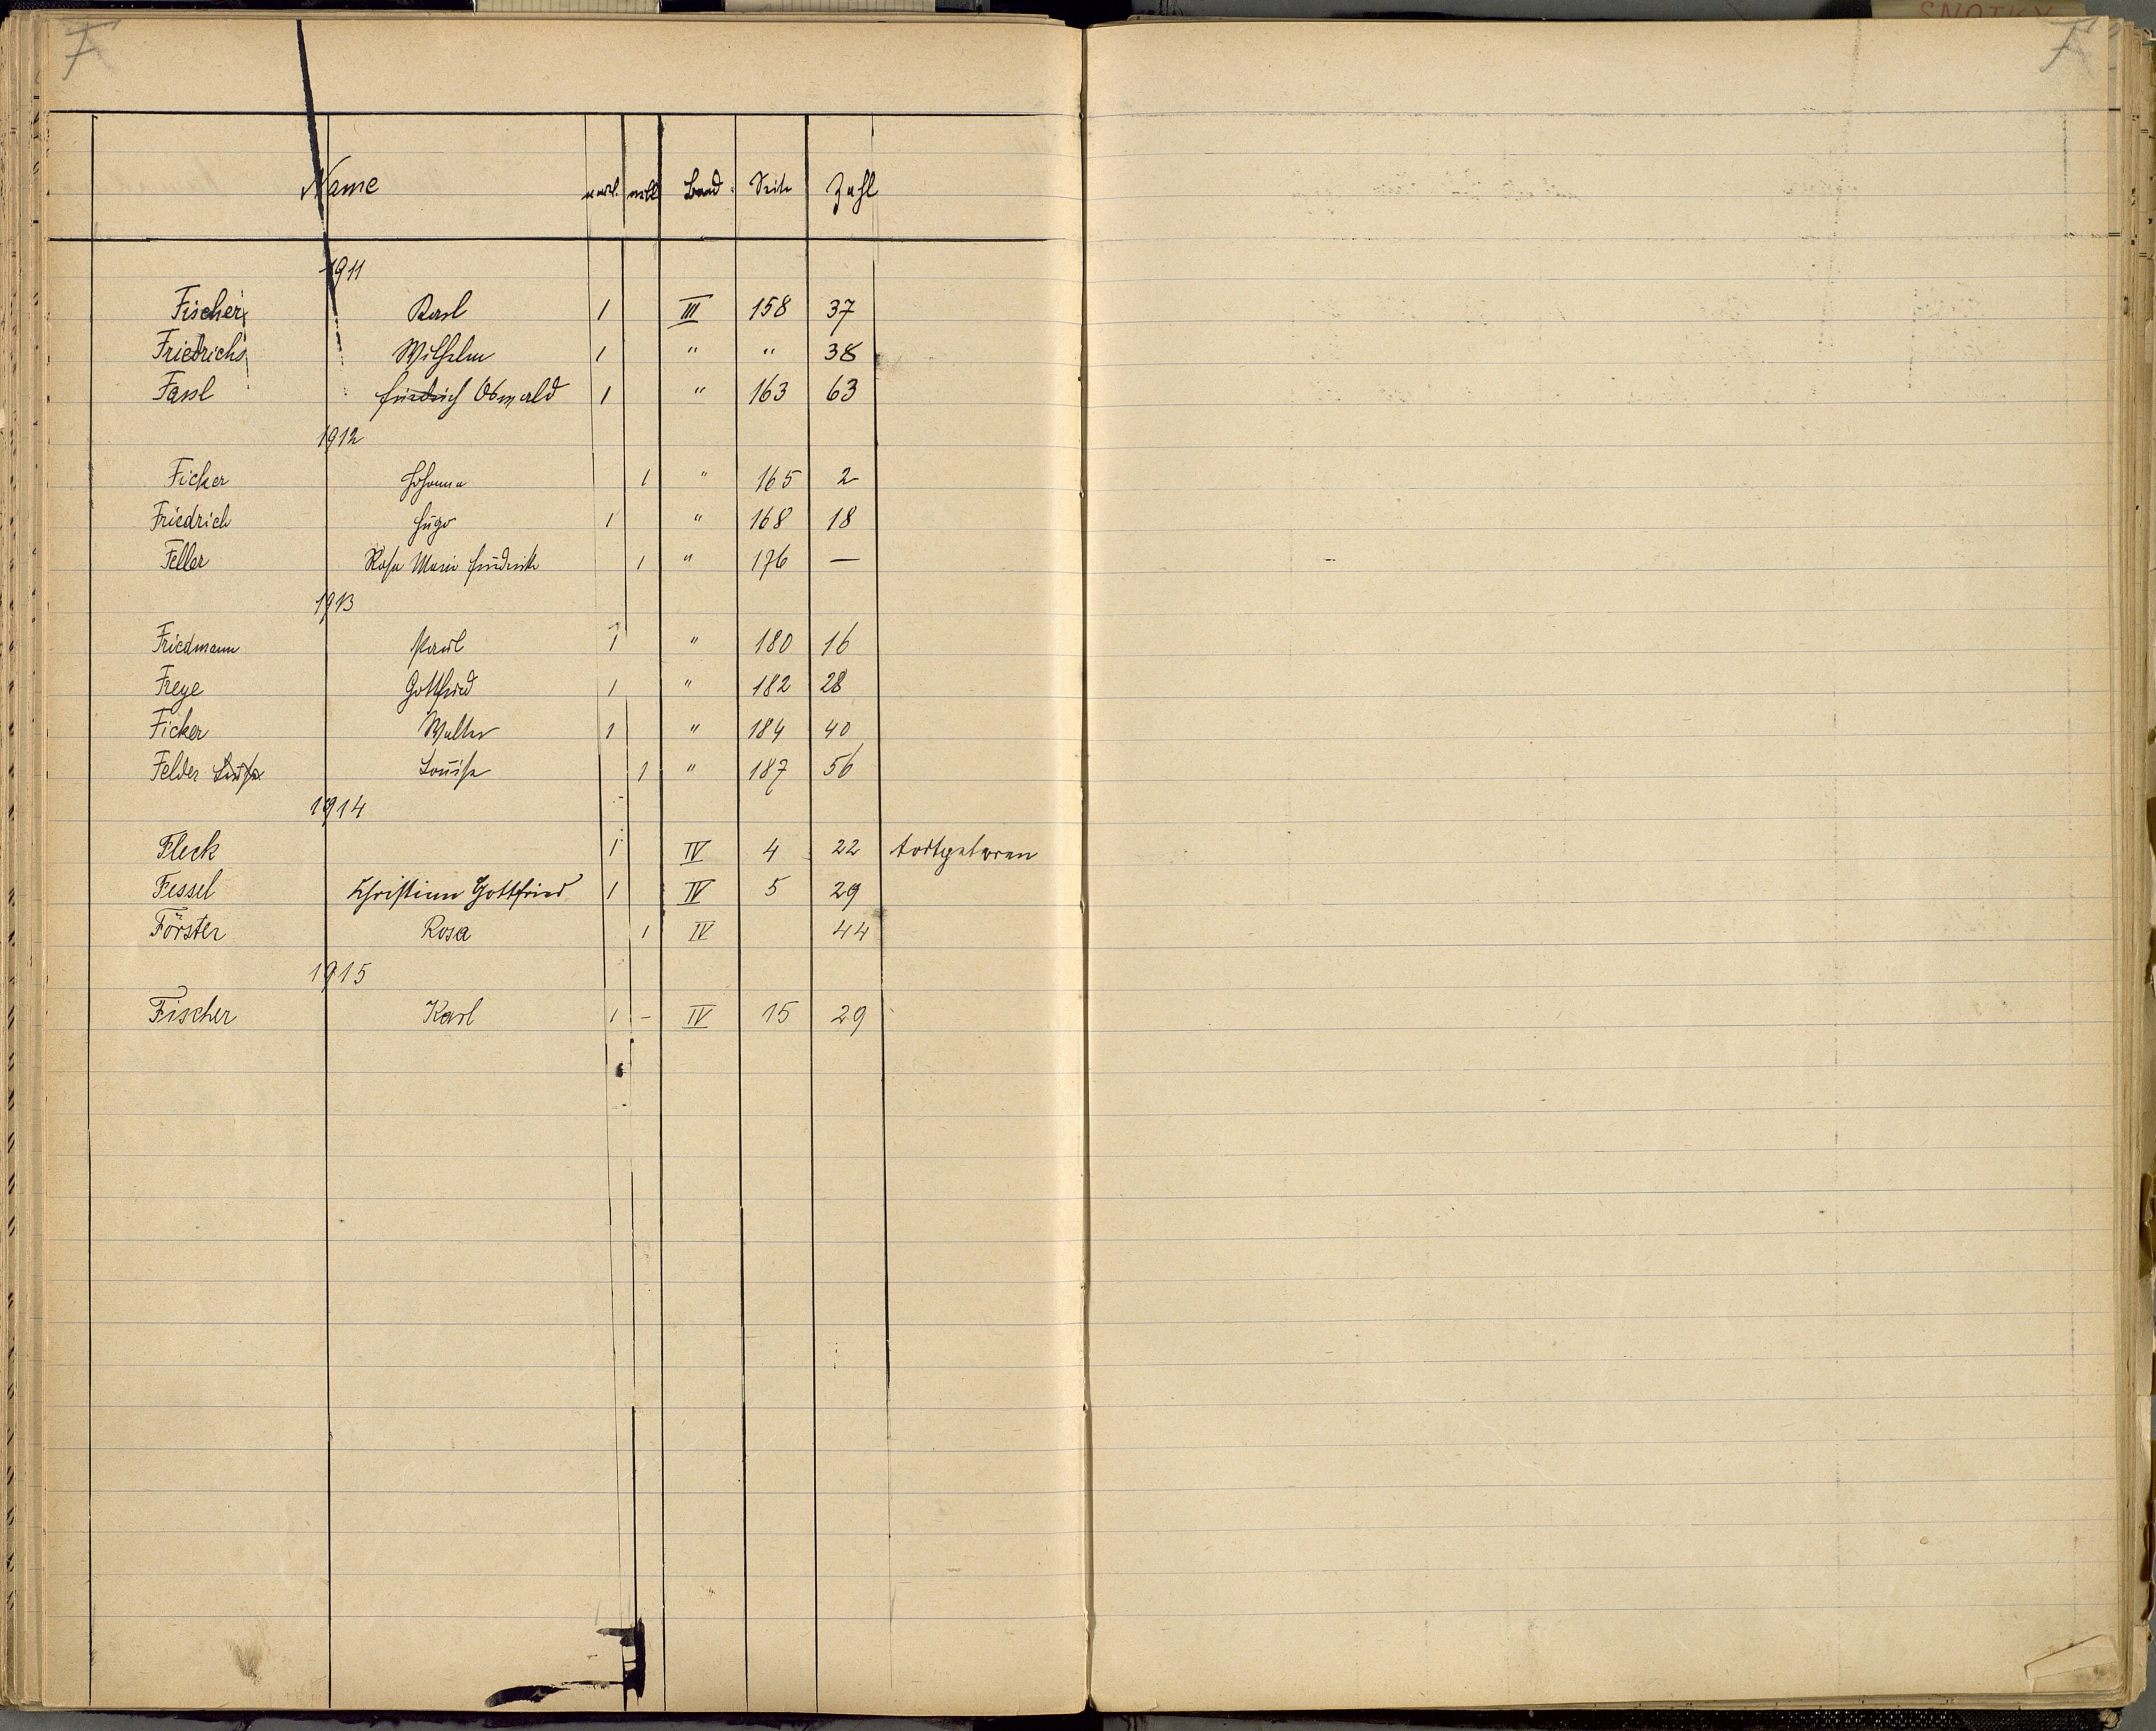 F F
Name männl. weibl. Band Seite Zahl
1911
Fischer Karl 1 III 158 37
Friedrichs Wilhelm 1 " " 38
Fassl Friedrich Oswald 1 " 163 63
1912
Ficker Johanna 1 " 165 2
Friedrich Hugo 1 " 168 18
Feller Rosa Marie Friedrike 1 " 176 —
1913
Friedmann Paul 1 " 180 16
Freye Gottfried 1 " 182 28
Ficker Walter 1 " 184 40
Felder Louise Louise 1 " 187 56
1914
Fleck 1 IV 4 22 totgeboren
Fessel Christian Gottfried 1 IV 5 29
Förster Rosa 1 IV 44
1915
Fischer Karl 1 - IV 15 29